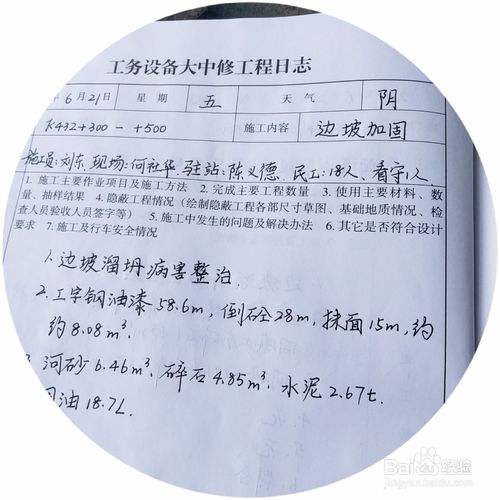 工务设备大中修工程日志
6月21日 星期 五 天气 阴
K432+300 - +500 施工内容 边坡加固
施工员:刘东,现场:何社华,驻站:陈义德,民工:18人,看守1人
1. 施工主要作业项目及施工方法 2. 完成主要工程数量 3. 使用主要材料、数
量、抽样结果 4. 隐蔽工程情况(绘制隐蔽工程各部尺寸草图、基础地质情况、检
查人员验收人员签字等) 5. 施工中发生的问题及解决办法 6. 其它是否符合设计
要求 7. 施工及行车安全情况
1.边坡溜坍病害整治
2.工字钢油漆58.6m,倒砼28m,抹面15m,约
约8.08m³.
河砂6.46m³,碎石4.85m³,水泥2.67t.
油18.7L.
Baidu经验
jingyan.baidu.com